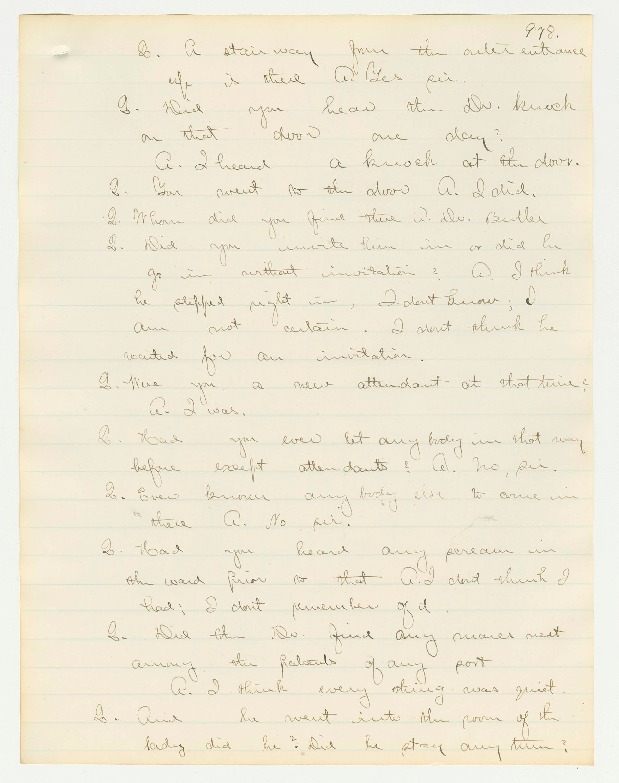 978.
Q. A stairway from the outer entrance
up is there A. Yes sir.
Q. Did you hear the Dr. knock
on that door one day?
A. I heard a knock at the door.
Q. You went to the door A. I did.
Q. Whom did you find there A. Dr. Butler
Q. Did you invite him in or did he
go in without invitation? A. I think
he stepped right in, I dont know; I
am not certain. I dont think he
waited for an invitation.
Q. Were you a new attendant at that time?
A. I was.
Q. Had you ever let any body in that way
before except attendants? A. No, sir.
Q. Ever known any body else to come in
there A. No sir.
Q. Had you heard any scream in
the ward prior to that A. I dont think I
had; I dont remember of it.
Q. Did the Dr. find any mares nest
among the patients of any sort
A. I think every thing was quiet.
Q. And he went into the room of the
lady did he? Did he stay any time?